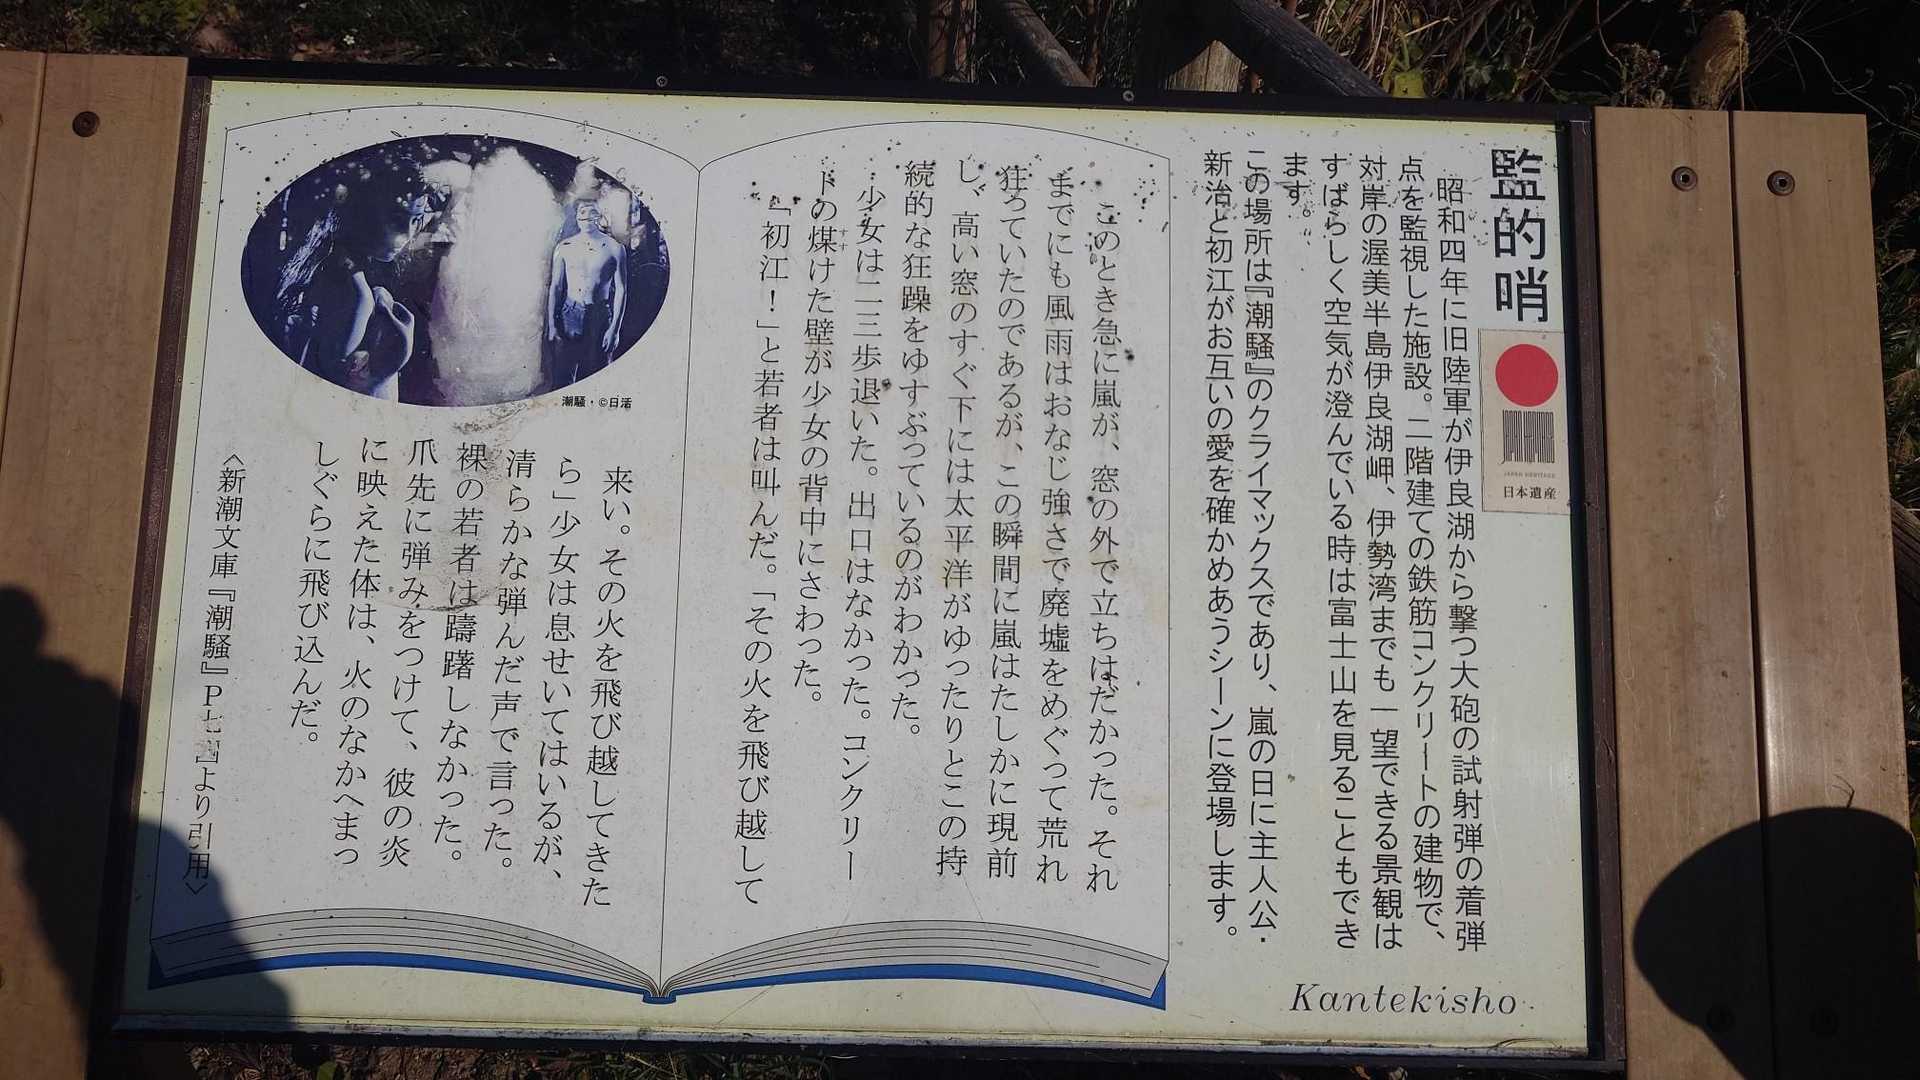 監的哨
JAPAN HERITAGE
日本遺産
昭和四年に旧陸軍が伊良湖から撃つ大砲の試射弾の着弾
点を監視した施設。二階建ての鉄筋コンクリートの建物で、
対岸の渥美半島伊良湖岬、伊勢湾までも一望できる景観は
すばらしく空気が澄んでいる時は富士山を見ることもでき
ます。
この場所は『潮騒』のクライマックスであり、嵐の日に主人公・
新治と初江がお互いの愛を確かめあうシーンに登場します。
Kantekisho
このとき急に嵐が、窓の外で立ちはだかった。それ
までにも風雨はおなじ強さで廃墟をめぐって荒れ
狂っていたのであるが、この瞬間に嵐はたしかに現前
し、高い窓のすぐ下には太平洋がゆったりとこの持
続的な狂躁をゆすぶっているのがわかった。
少女は二三歩退いた。出口はなかった。コンクリー
トの煤けた壁が少女の背中にさわった。
すす
「初江！」と若者は叫んだ。「その火を飛び越して
潮騒・©日活
来い。その火を飛び越してきた
ら」少女は息せいてはいるが、
清らかな弾んだ声で言った。
裸の若者は躊躇しなかった。
爪先に弾みをつけて、彼の炎
に映えた体は、火のなかへまっ
しぐらに飛び込んだ。
〈新潮文庫『潮騒』P七四より引用〉